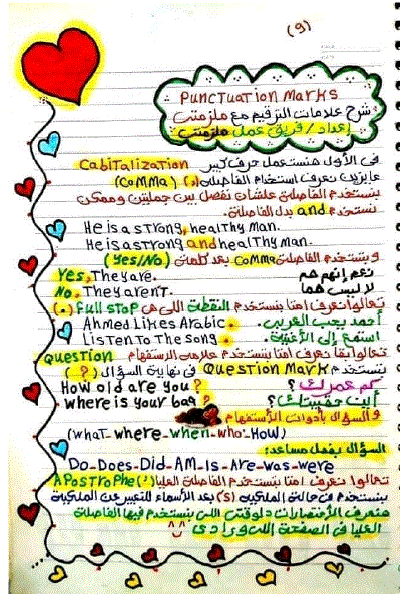 (9)
Punctuation Marks
شرح علامات الترقيم مع ملزمتى
إعداد / فريق عمل ملزمتى
فى الأول هنستعمل حرف كبير Cabitalization
عايزين نعرف استخدام الفاصلة (,) (Comma)
بنستخدم الفاصلة علشان نفصل بين جملتين وممكن
نستخدم and بدل الفاصلة.
He is a strong, healthy man.
He is a strong and healthy man.
وبنستخدم الفاصلة comma بعد كلمتى (Yes/No)
Yes, They are. نعم إنهم هم
No, They aren't. لا ليس هما
تعالوا نعرف امتا بنستخدم النقطة اللى هى Full stop (.)
Ahmed Likes Arabic. أحمد يحب العربى.
Listen To The song. استمع إلى الأغنية.
تعالوا بقا نعرف امتا بنستخدم علامه الاستفهام Question
بنستخدم Question Mark فى نهاية السؤال (?)
How old are you? كم عمرك؟
where is your bag? أين حقيبتك؟
والسؤال بأدوات الاستفهام
(what-where-when-who-How)
السؤال بفعل مساعد:
Do-Does-Did-AM-Is-Are-was-were
تعالوا نعرف امتا بنستخدم الفاصلة العليا (') Apostrophe
بنستخدم فى حالة الملكيه (s) بعد الأسماء للتعبير عن الملكية
هنعرف الأختصارات دلوقتى اللى بنستخدم فيها الفاصلة
العليا فى الصفحة اللى ورا دى ^^